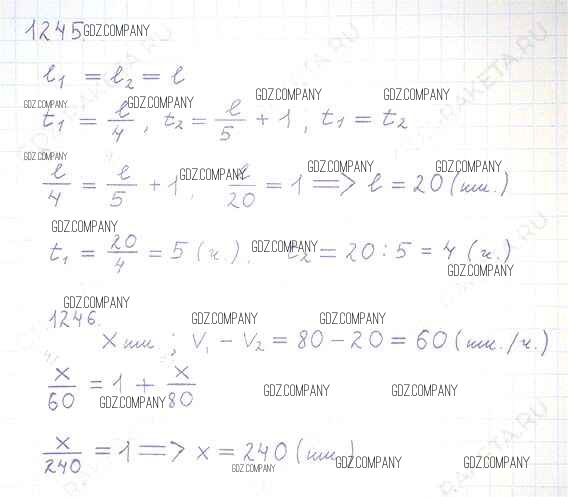 1245 GDZ.COMPANY
l₁ = l₂ = l
GDZ.COMPANY GDZ.COMPANY GDZ.COMPANY GDZ.COMPANY
t₁ = l/4, t₂ = l/5 + 1, t₁ = t₂
GDZ.COMPANY GDZ.COMPANY GDZ.COMPANY GDZ.COMPANY
l/4 = l/5 + 1, l/20 = 1 => l = 20 (км.)
GDZ.COMPANY GDZ.COMPANY
t₁ = 20/4 = 5 (ч.). t₂ = 20 : 5 = 4 (ч.)
GDZ.COMPANY
GDZ.COMPANY
1246. GDZ.COMPANY GDZ.COMPANY
x км ; V₁ - V₂ = 80 - 20 = 60 (км./ч.)
x/60 = 1 + x/80
GDZ.COMPANY GDZ.COMPANY GDZ.COMPANY
x/240 = 1 => x = 240 (км)
GDZ.COMPANY GDZ.COMPANY GDZ.COMPANY